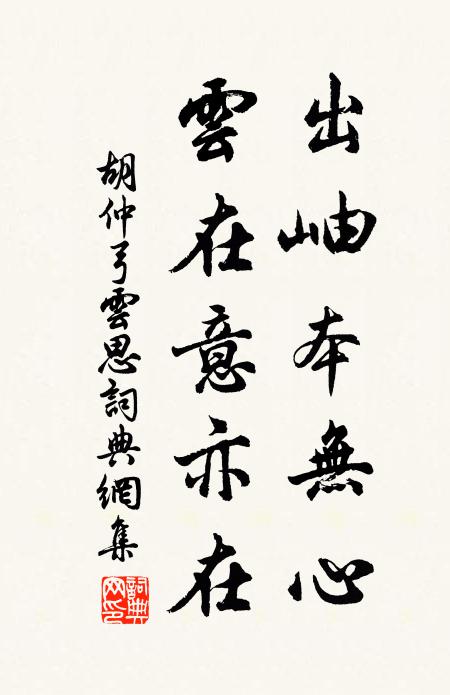 出岫本無心
雲在意亦在
胡仲弓雲思詞典網集
詞典網印